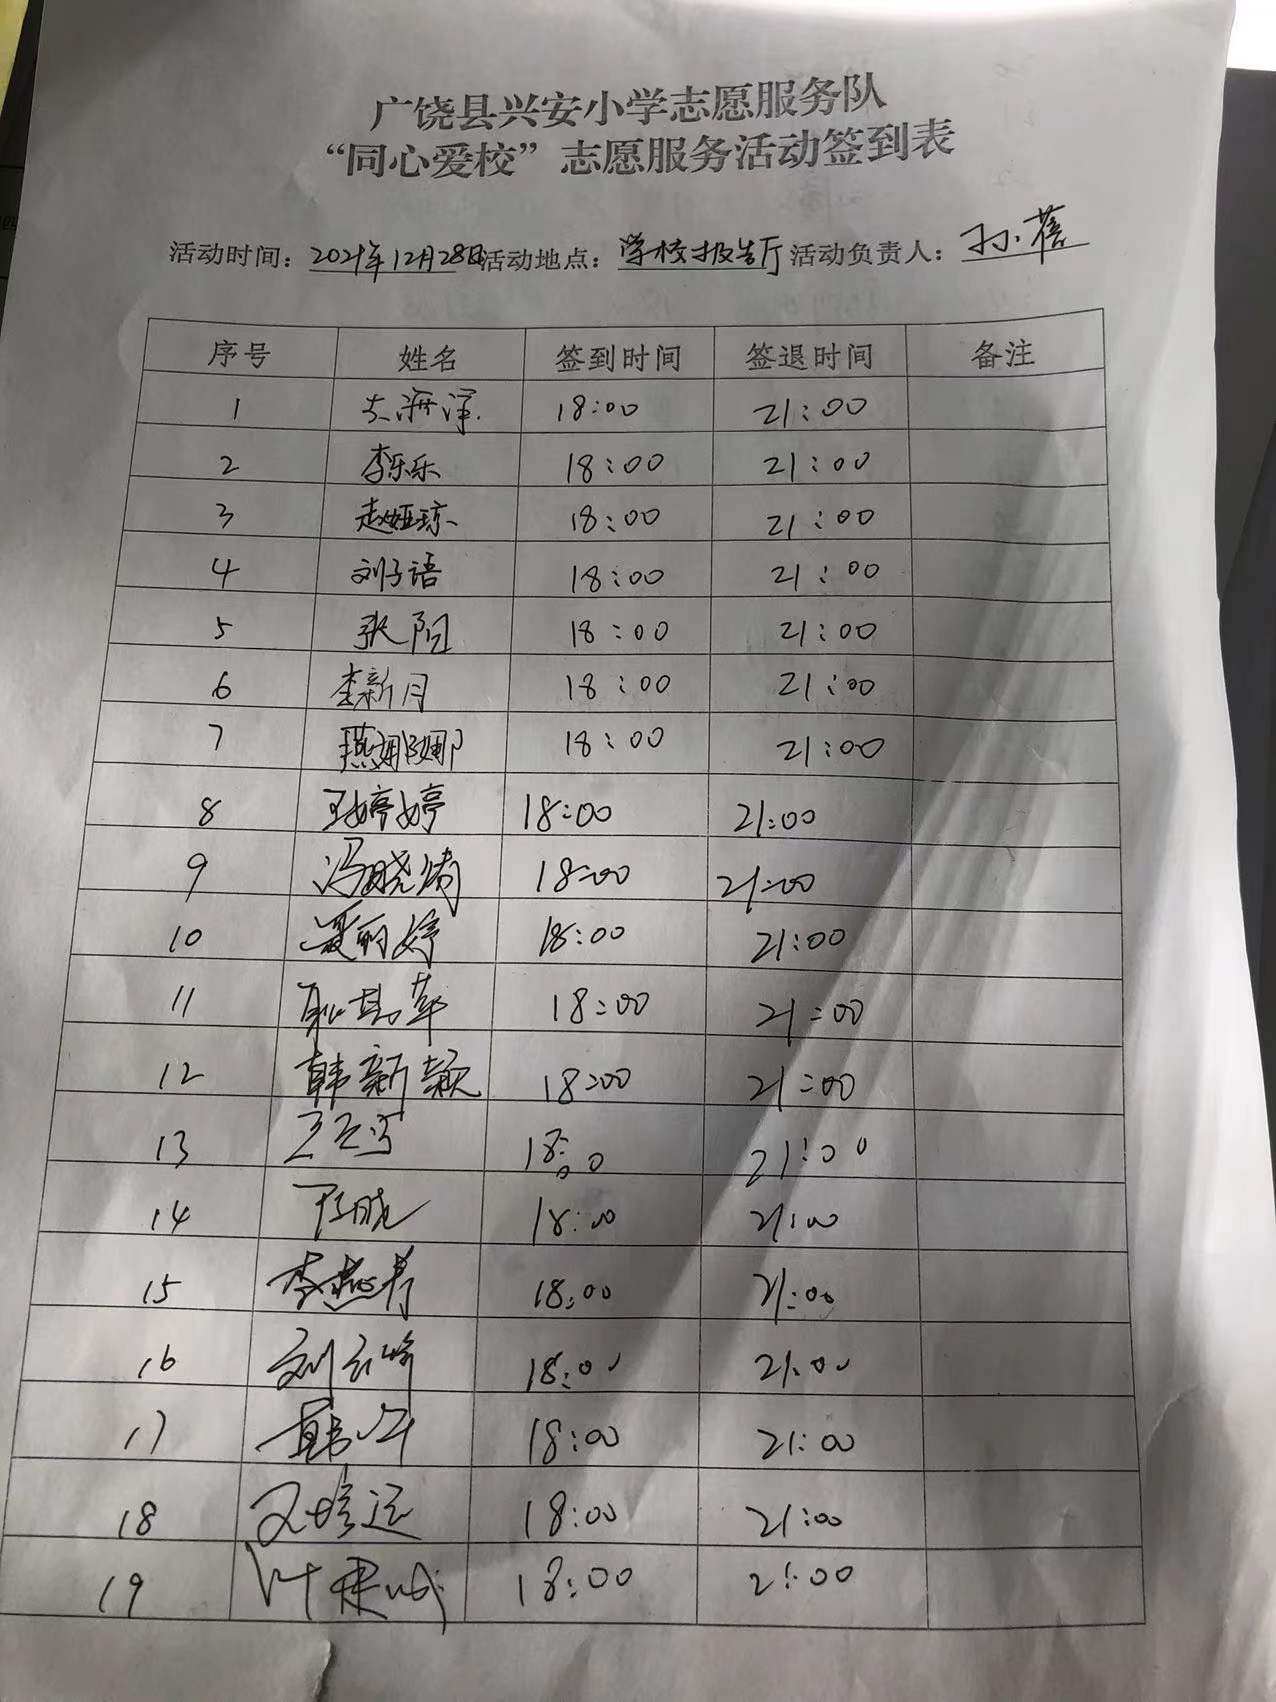 广饶县兴安小学志愿服务队
“同心爱校”志愿服务活动签到表
活动时间：2021年12月28日活动地点：学校报告厅 活动负责人：孙蓓
序号 姓名 签到时间 签退时间 备注
1 海洋 18:00 21:00
2 李乐乐 18:00 21:00
3 赵娅琼 18:00 21:00
4 刘子语 18:00 21:00
5 张阳 18:00 21:00
6 李新月 18:00 21:00
7 燕娜娜 18:00 21:00
8 王婷婷 18:00 21:00
9 冯晓倩 18:00 21:00
10 聂丽婷 18:00 21:00
11 18:00 21:00
12 韩新颖 18:00 21:00
13 18:00 21:00
14 晓 18:00 21:00
15 李燕 18:00 21:00
16 刘云峰 18:00 21:00
17 韩 18:00 21:00
18 培运 18:00 21:00
19 叶建成 18:00 21:00